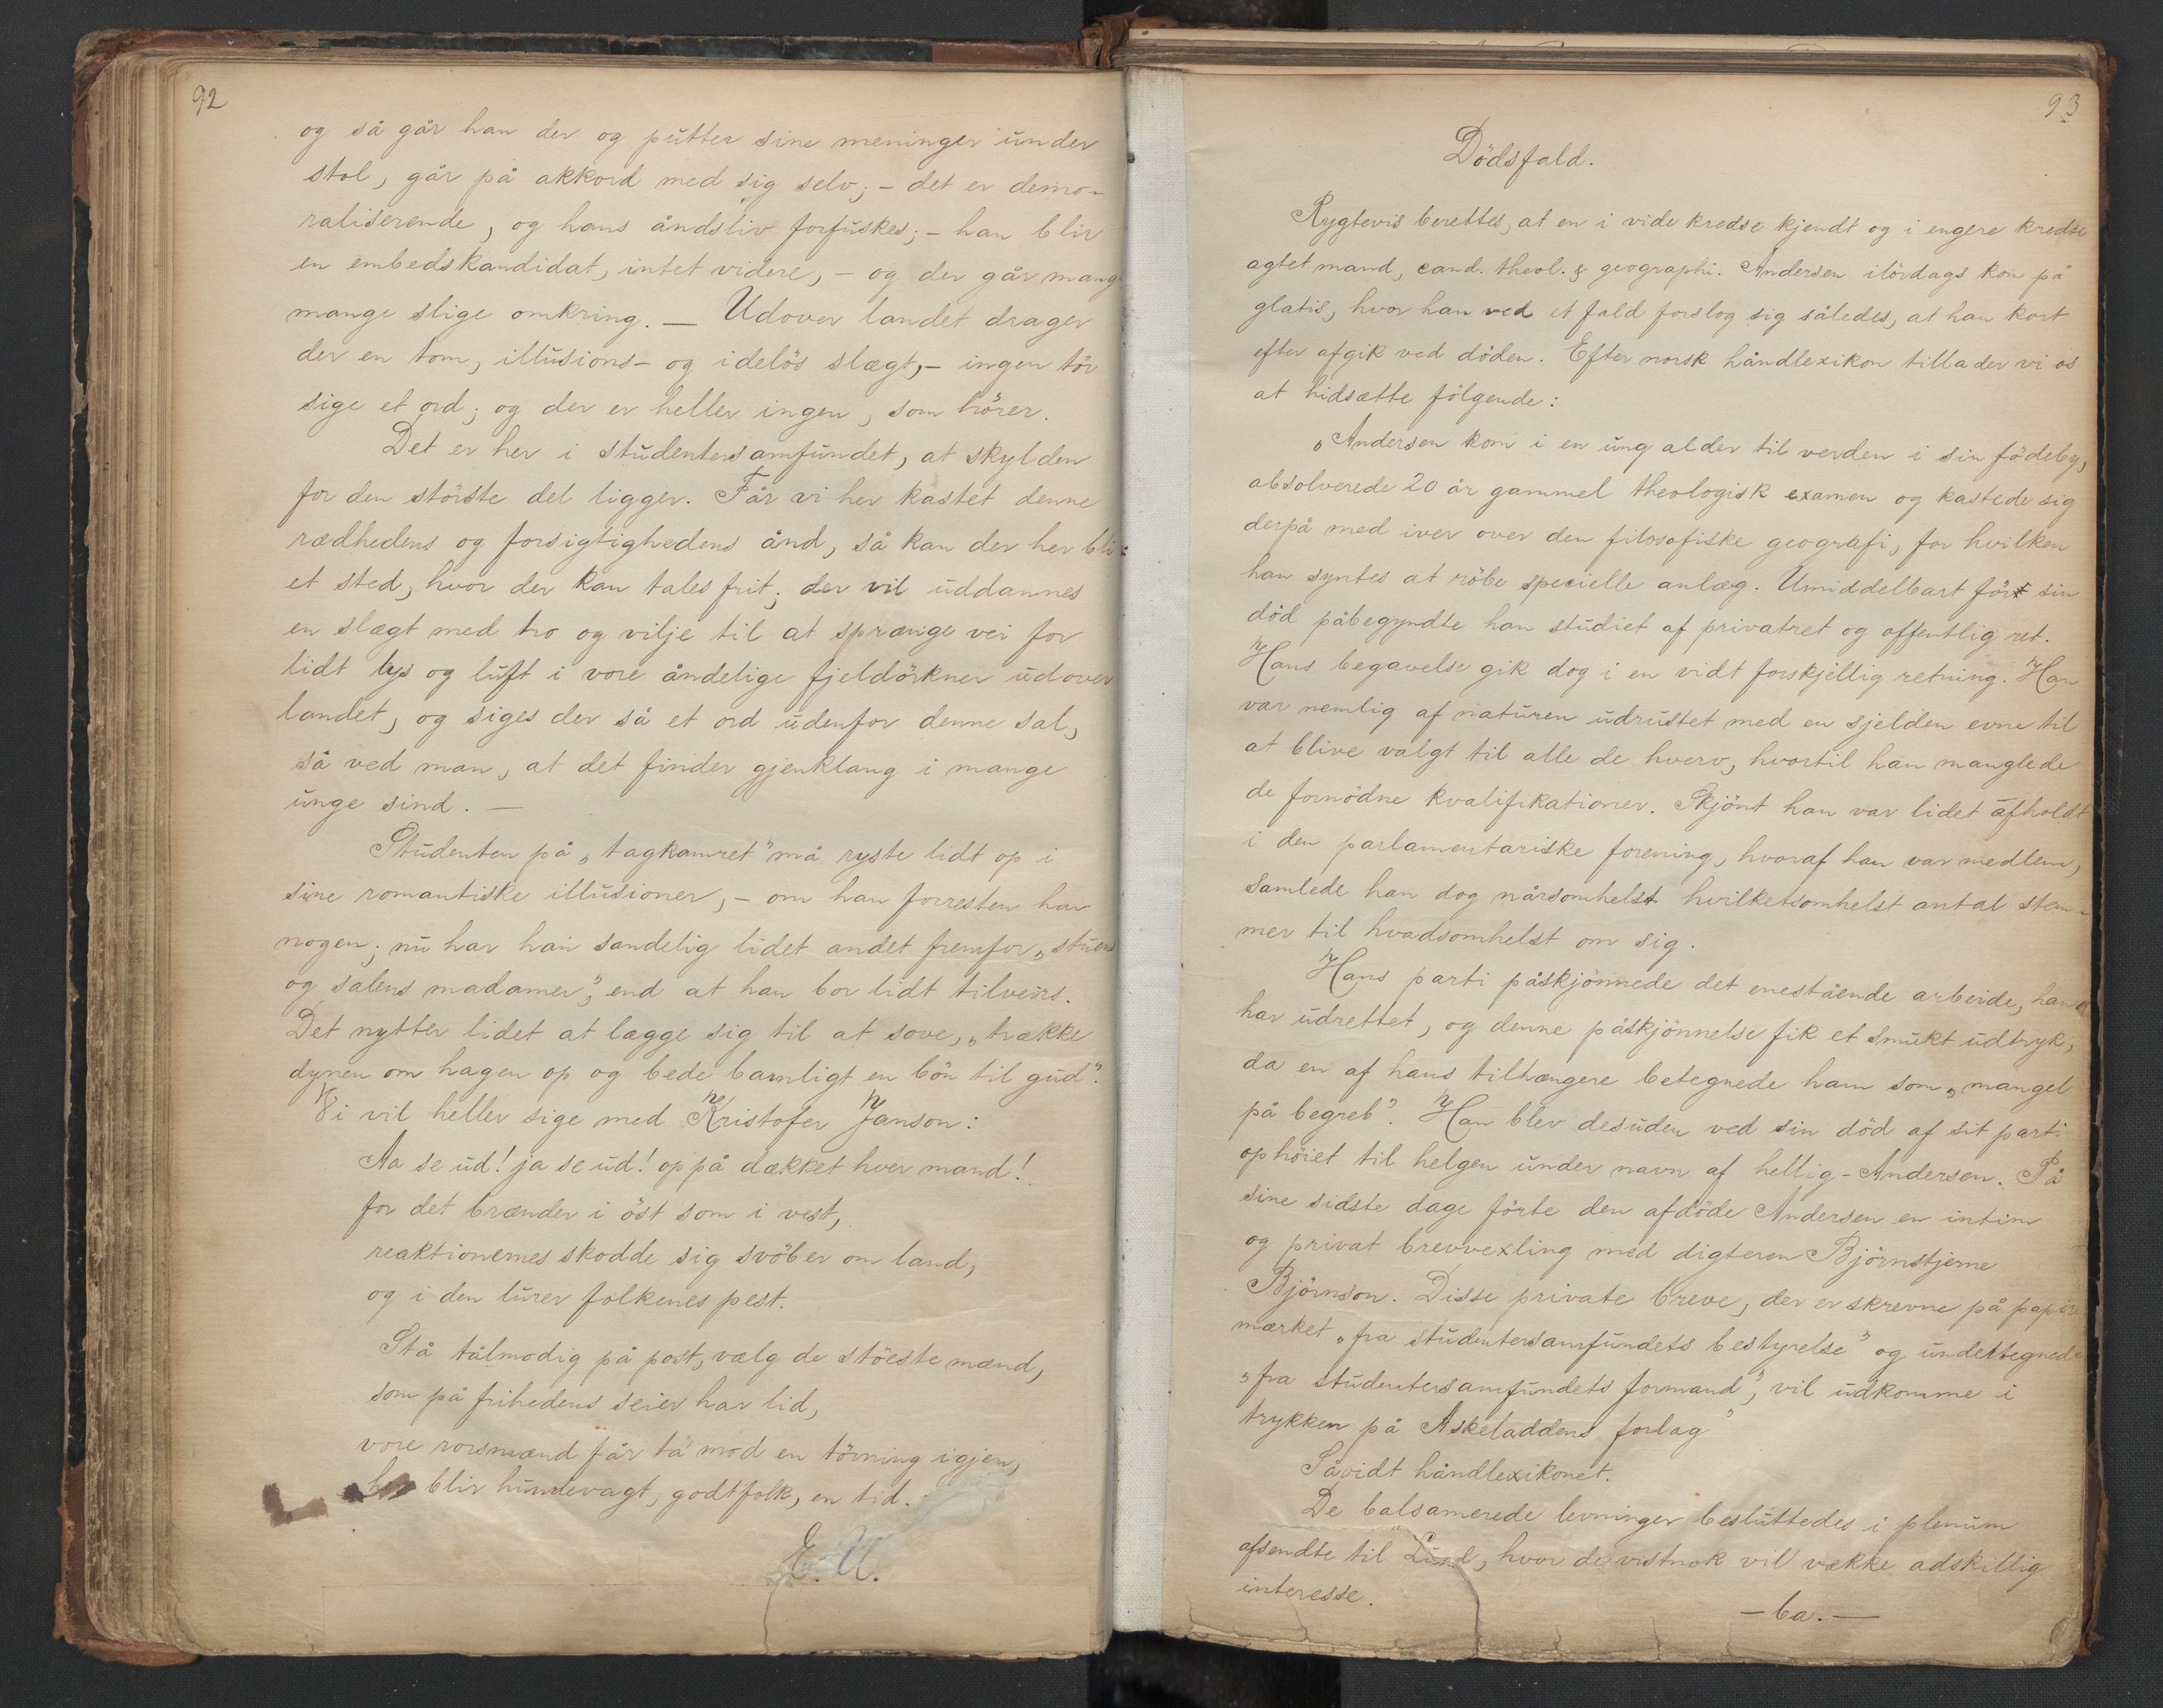 92
og så går han der og putter sine meninger under
stol, går på akkord med sig selv; – det er demo-
raliserende, og hans åndsliv forfuskes; – han blir
en embedskandidat, intet videre, – og der går mang
mange slige omkring. — Udover landet drager
der en tom, illusions- og idelös slægt, – ingen tör
sige et ord; og der er heller ingen, som hörer.
Det er her i studentersamfundet, at skylden
for den störste del ligger. Får vi her kastet denne
rædhedens og forsigtighedens ånd, så kan der her bli
et sted, hvor der kan tales frit; der vil uddannes
en slægt med tro og vilje til at sprænge vei for
lidt lys og luft i vore åndelige fjeldörkner udover
landet, og siges der så et ord udenfor denne sal,
så ved man, at det finder gjenklang i mange
unge sind. —
Studenten på „tagkamret" må ryste lidt op i
sine romantiske illusioner, – om han forresten har
nogen; nu har han sandelig lidet andet fremfor „stuens
og salens madamer", end at han bor lidt tilveirs.
Det nytter lidet at lægge sig til at sove, „trække
dynen om hagen op og bede barnligt en bön til gud".
Vi vil heller sige med Kristofer Janson:
Aa se ud! ja se ud! op på dækket hver mand!
for det brænder i öst som i vest,
reaktionernes skodde sig svöber om land,
og i den lurer folkenes pest.
Stå tålmodig på post, vælg de stöeste mænd,
som på frihedens seier har lid,
vore rorsmænd får ta mod en törning igjen,
her blir hundevagt, godtfolk, en tid.
E. U.
93
Dödsfald.
Rygtevis berettes, at en i vide kredse kjendt og i engere kredse
agtet mand, cand. theol. & geographi. Andersen ilördags kom på
glatis, hvor han ved et fald forslog sig således, at han kort
efter afgik ved döden. Efter norsk håndlexikon tillader vi os
at hidsætte fölgende:
„Andersen kom i en ung alder til verden i sin födeby,
absolverede 20 år gammel theologisk examen og kastede sig
derpå med iver over den filosofiske geografi, for hvilken
han syntes at röbe specielle anlæg. Umiddelbart för sin
död påbegyndte han studiet af privatret og offentlig ret.
Hans begavelse gik dog i en vidt forskjellig retning. Han
var nemlig af naturen udrustet med en sjelden evne til
at blive valgt til alle de hverv, hvortil han manglede
de fornödne kvalifikationer. Skjönt han var lidet afholdt
i den parlamentariske forening, hvoraf han var medlem,
samlede han dog nårsomhelst hvilketsomhelst antal stem-
mer til hvadsomhelst om sig.
Hans parti påskjönnede det enestående arbeide, han
har udrettet, og denne påskjönnelse fik et smukt udtryk,
da en af hans tilhængere betegnede ham som „mangel
på begreb". Han blev desuden ved sin död af sit parti
ophöiet til helgen under navn af hellig-Andersen. På
sine sidste dage förte den afdöde Andersen en intim
og privat brevvexling med digteren Björnstjerne
Björnson. Disse private breve, der er skrevne på papir
mærket „fra studentersamfundets bestyrelse" og undertegnede
„fra studentersamfundets formand", vil udkomme i
trykken på Askeladdens forlag"
Såvidt håndlexikonet.
De balsamerede levninger besluttedes i plenum
afsendte til Lund, hvor de vistnok vil vække adskillig
interesse.
– ba. —